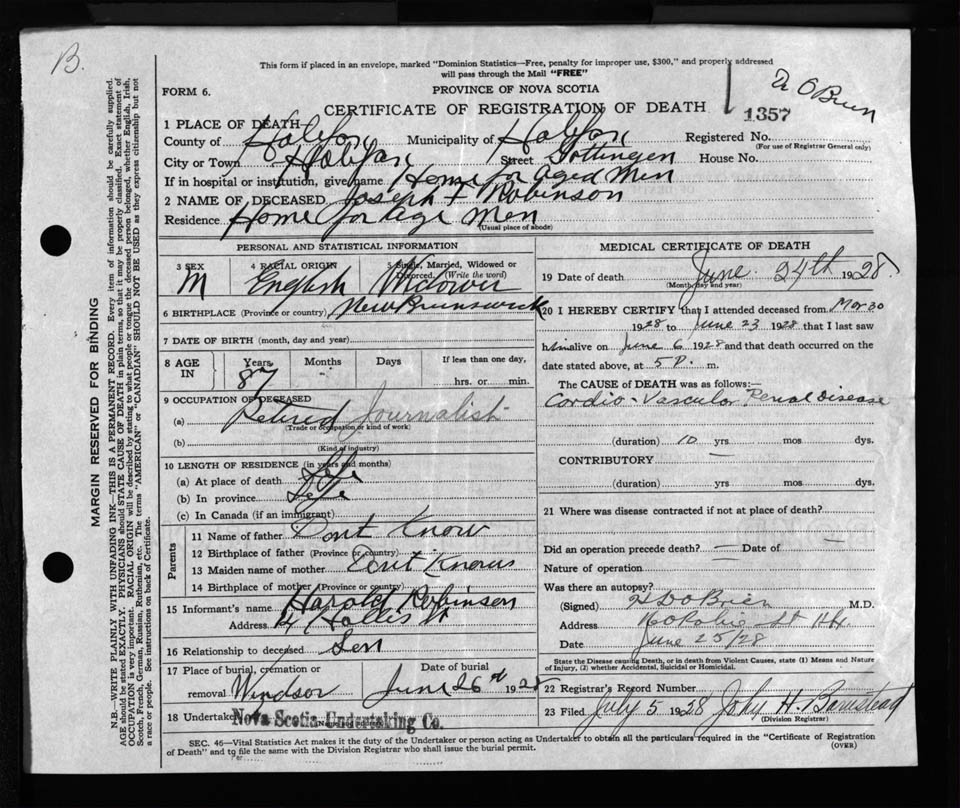 B.
This form if placed in an envelope, marked "Dominion Statistics—Free, penalty for improper use, $300," and properly addressed
will pass through the Mail "FREE"
FORM 6.
PROVINCE OF NOVA SCOTIA
O'Brien
CERTIFICATE OF REGISTRATION OF DEATH
1357
1 PLACE OF DEATH
County of Halifax Municipality of Halifax Registered No.
(For use of Registrar General only)
City or Town Halifax Street Gottingen House No.
If in hospital or institution, give name Home for aged Men
2 NAME OF DECEASED Joseph F Robinson
Residence Home for Age Men
(Usual place of abode)
PERSONAL AND STATISTICAL INFORMATION
3 SEX 4 RACIAL ORIGIN 5 Single, Married, Widowed or
Divorced. (Write the word)
M English Widower
6 BIRTHPLACE (Province or country) New Brunswick
7 DATE OF BIRTH (month, day and year)
8 AGE IN Years Months Days If less than one day,
87 hrs. or min.
9 OCCUPATION OF DECEASED
(a) Retired Journalist
(Trade or occupation or kind of work)
(b)
(Kind of industry)
10 LENGTH OF RESIDENCE (in years and months)
(a) At place of death Life
(b) In province Life
(c) In Canada (if an immigrant)
Parents
11 Name of father Dont Know
12 Birthplace of father (Province or country)
13 Maiden name of mother Dont Know
14 Birthplace of mother (Province or country)
15 Informant's name Harold Robinson
Address Hollis St
16 Relationship to deceased Son
17 Place of burial, cremation or Date of burial
removal Windsor June 26 1928
18 Undertaker Nova Scotia Undertaking Co.
MEDICAL CERTIFICATE OF DEATH
19 Date of death June 24th 1928
(Month, day and year)
20 I HEREBY CERTIFY that I attended deceased from Mar 30
1928 to June 23 1928 that I last saw
him alive on June 6 1928 and that death occurred on the
date stated above, at 5 P. m.
The CAUSE of DEATH was as follows:—
Cardio-Vascular Renal disease
(duration) 10 yrs mos dys.
CONTRIBUTORY —
(duration) yrs mos dys.
21 Where was disease contracted if not at place of death?
Did an operation precede death? — Date of —
Nature of operation
Was there an autopsy?
(Signed) O'Brien M.D.
Address St Hfx
Date June 25/28
State the Disease causing Death, or in death from Violent Causes, state (1) Means and Nature
of Injury, (2) whether Accidental, Suicidal or Homicidal.
22 Registrar's Record Number
23 Filed July 5 1928 John H.
(Division Registrar)
SEC. 46—Vital Statistics Act makes it the duty of the Undertaker or person acting as Undertaker to obtain all the particulars required in the "Certificate of Registration
of Death" and to file the same with the Division Registrar who shall issue the burial permit.
(OVER)
MARGIN RESERVED FOR BINDING
N.B.—WRITE PLAINLY WITH UNFADING INK—THIS IS A PERMANENT RECORD. Every item of information should be carefully supplied.
AGE should be stated EXACTLY. PHYSICIANS should STATE CAUSE OF DEATH in plain terms, so that it may be properly classified. Exact statement of
OCCUPATION is very important. RACIAL ORIGIN will be described by stating to what people or tongue the deceased person belonged, whether English, Irish,
Scotch, French, German, Russian, Ruthenian, etc. The terms "AMERICAN" or "CANADIAN" SHOULD NOT BE USED as they express citizenship but not
a race or people. See instructions on back of Certificate.